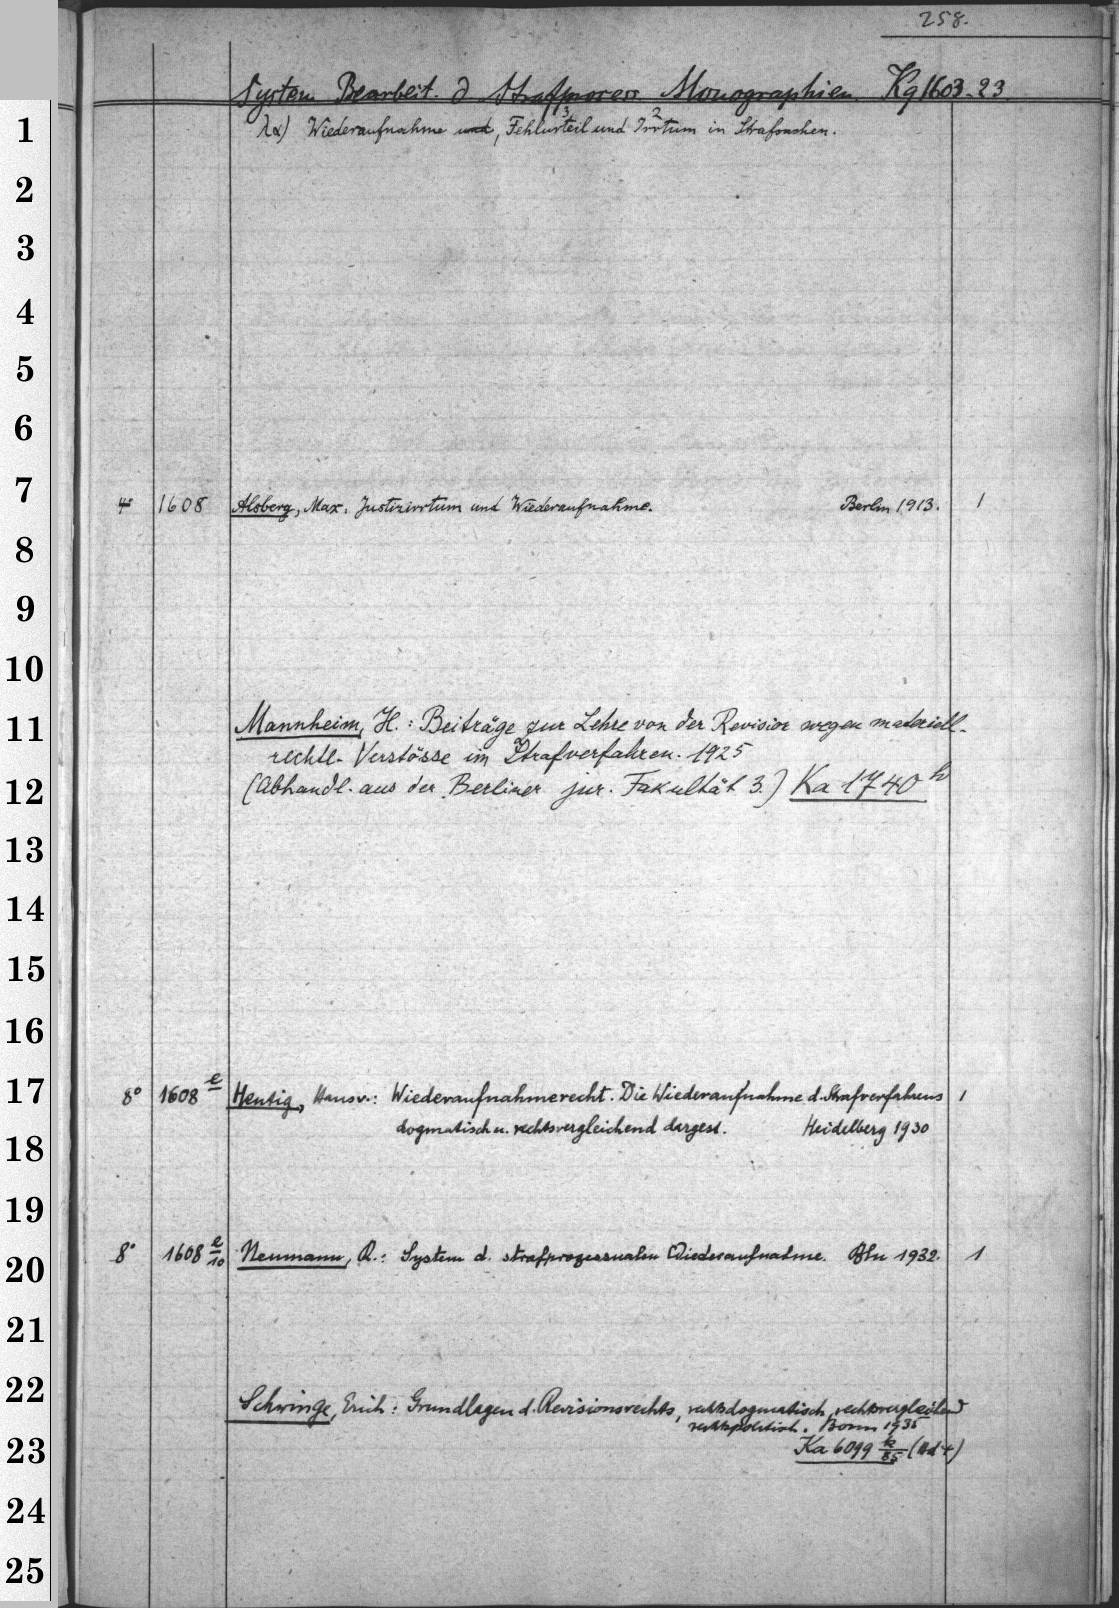 258.
System. Bearbeit. d Strafprozess Monographien. Kg 1603-23
λα) Wiederaufnahme und, Fehlurteil und Irrtum in Strafsachen.
3 2
1
2
3
4
5
6
7
4° 1608 Alsberg, Max. Justizirrtum und Wiederaufnahme. Berlin 1913. 1
8
9
10
11
Mannheim, H.: Beiträge zur Lehre von der Revision wegen materiell-
rechtl. Verstösse im Strafverfahren. 1925
12
(Abhandl. aus der Berliner jur. Fakultät 3.) Ka 1740 h
13
14
15
16
17
8° 1608 e Hentig, Hans v.: Wiederaufnahmerecht. Die Wiederaufnahme d. Strafverfahrens 1
dogmatisch u. rechtsvergleichend dargest. Heidelberg 1930
18
19
8° 1608 e/10 Neumann, O.: System d. strafprozessualen Wiederaufnahme. Bln 1932. 1
20
21
22
Schwinge, Erich: Grundlagen d. Revisionsrechts, rechtsdogmatisch, rechtsvergleichend
rechtspolitisch. Bonn 1935
23
Ka 6099 k/85 (Bd 4)
24
25